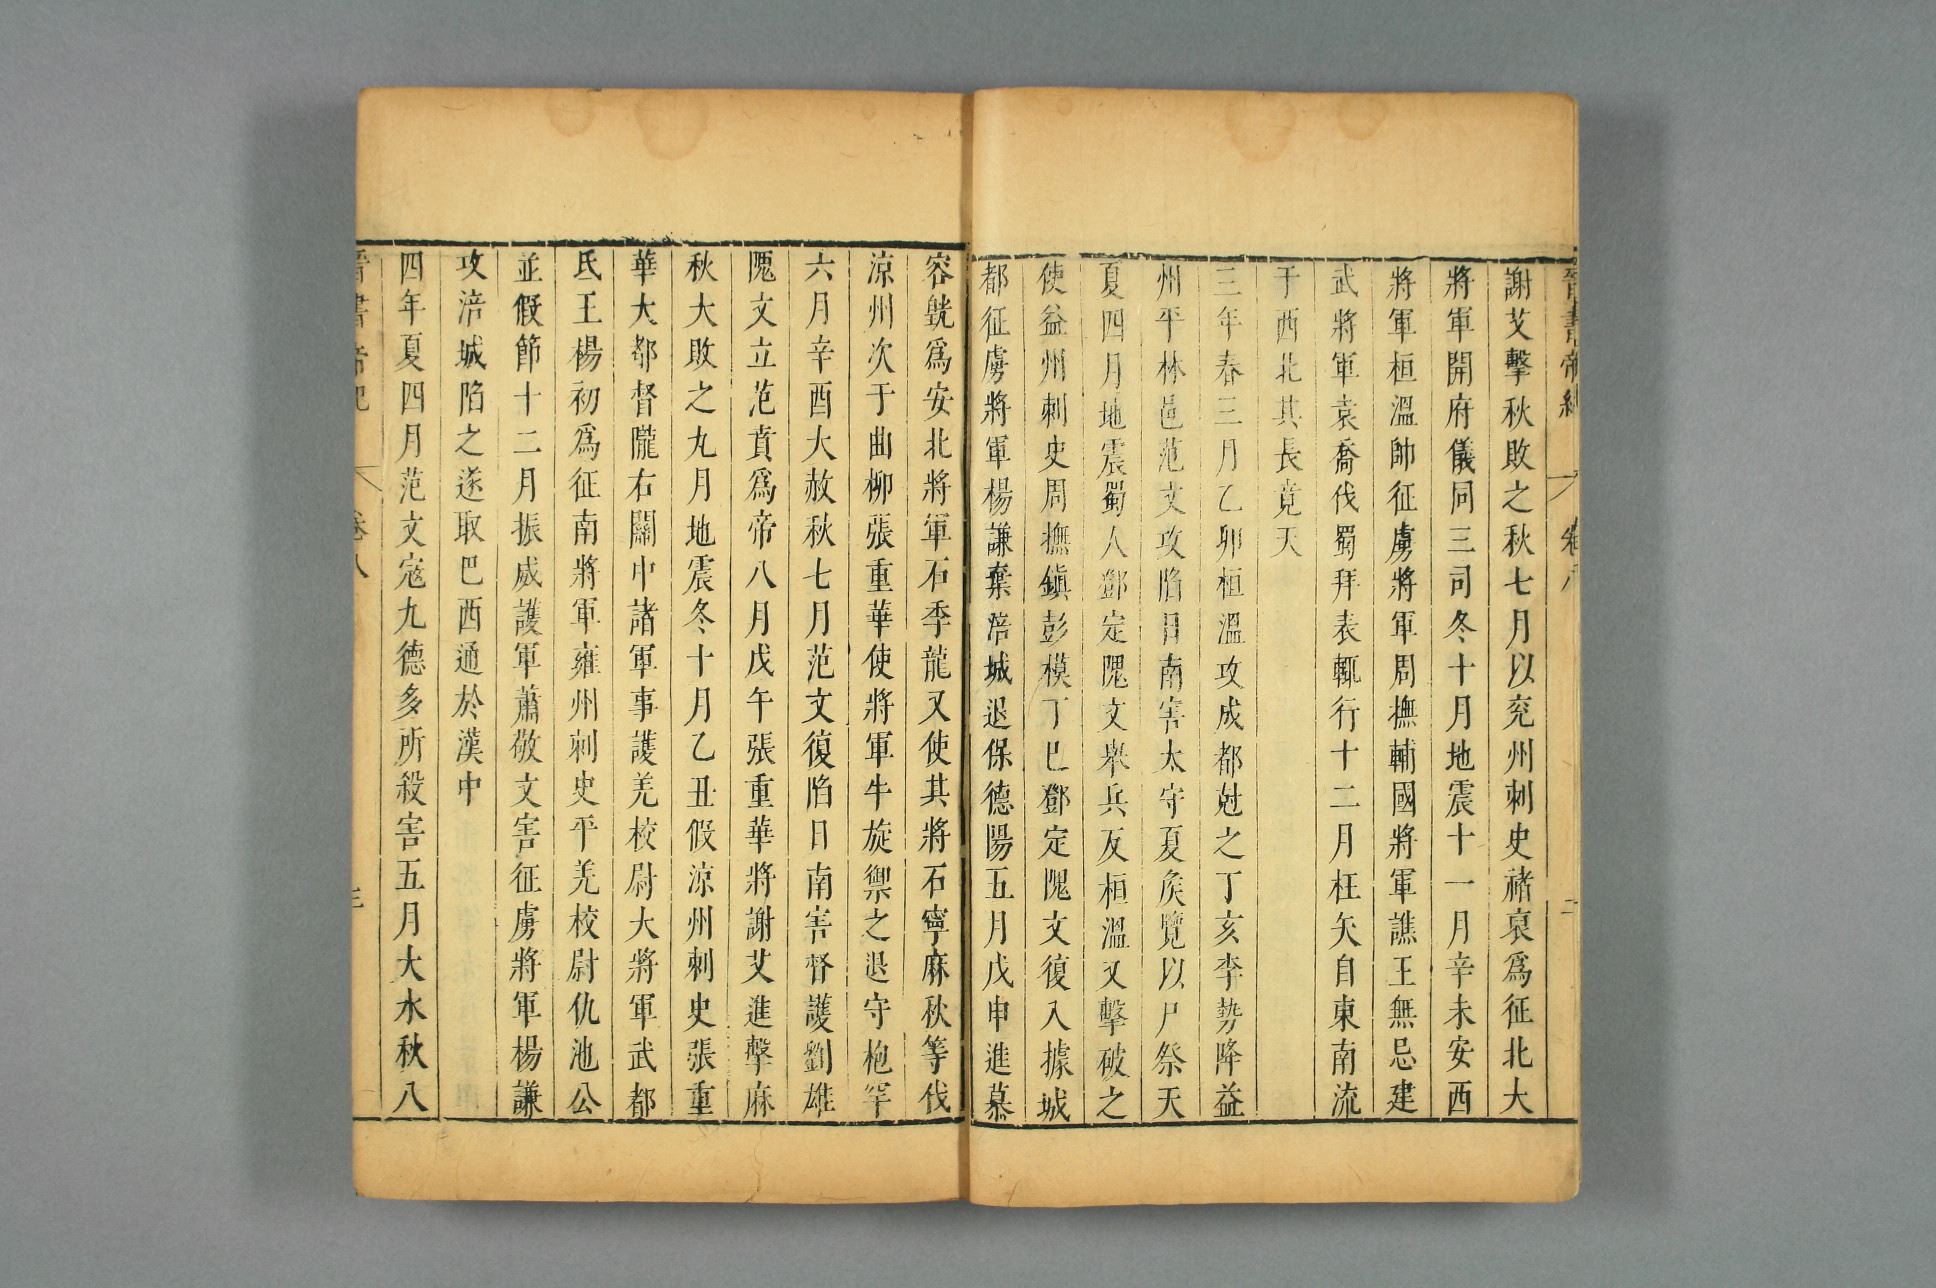 晉書帝紀 卷八 二
謝艾擊秋敗之秋七月以兖州刺史禇裒爲征北大
將軍開府儀同三司冬十月地震十一月辛未安西
將軍桓溫帥征虜將軍周撫輔國將軍譙王無忌建
武將軍袁喬伐蜀拜表輒行十二月枉矢自東南流
于西北其長竟天
三年春三月乙卯桓溫攻成都尅之丁亥李勢降益
州平林邑范文攻陷日南害太守夏矦覽以尸祭天
夏四月地震蜀人鄧定隗文舉兵反桓溫又擊破之
使益州刺史周撫鎭彭模丁巳鄧定隗文復入據城
都征虜將軍楊謙棄涪城退保德陽五月戊申進慕
容皝爲安北將軍石季龍又使其將石寧麻秋等伐
涼州次于曲柳張重華使將軍牛旋禦之退守枹罕
六月辛酉大赦秋七月范文復陷日南害督護劉雄
隗文立范賁爲帝八月戊午張重華將謝艾進擊麻
秋大敗之九月地震冬十月乙丑假涼州刺史張重
華大都督隴右關中諸軍事護羌校尉大將軍武都
氐王楊初爲征南將軍雍州刺史平羌校尉仇池公
並假節十二月振威護軍蕭敬文害征虜將軍楊謙
攻涪城陷之遂取巴西通於漢中
四年夏四月范文寇九德多所殺害五月大水秋八
晉書帝紀 卷八 三